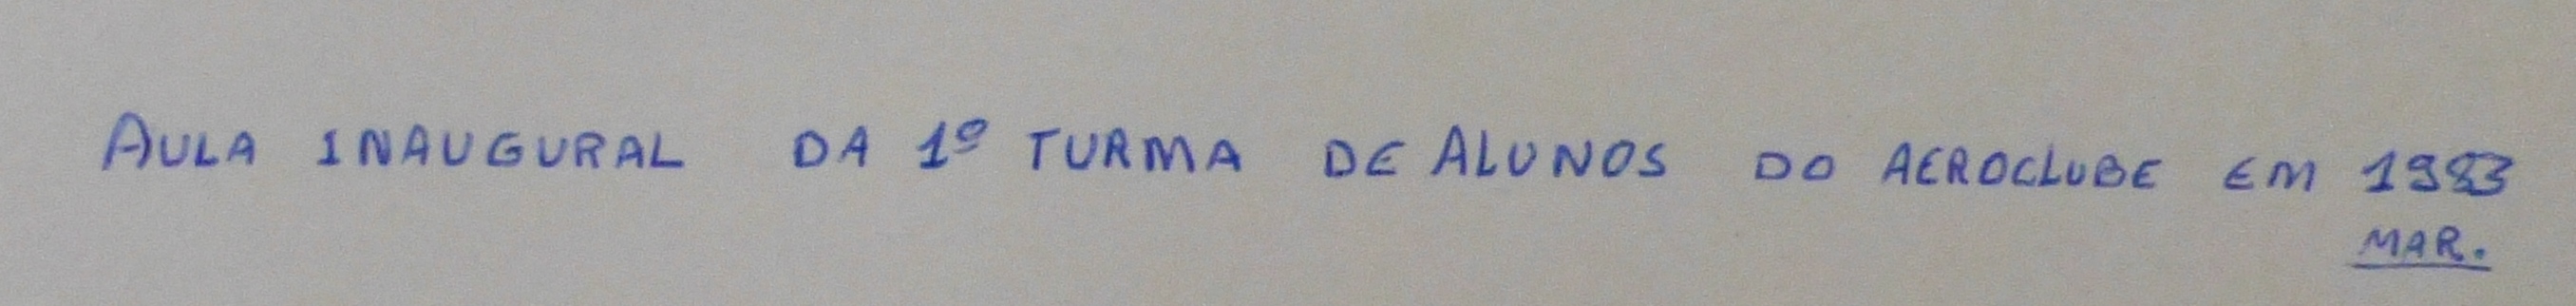 AULA INAUGURAL DA 1º TURMA DE ALUNOS DO AEROCLUBE EM 1983
MAR.